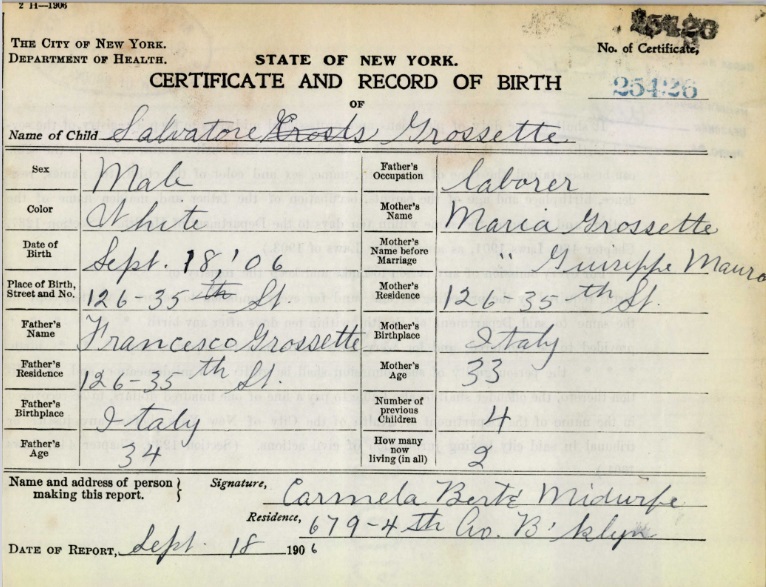 2 H—1906
25426
THE CITY OF NEW YORK.
DEPARTMENT OF HEALTH.
No. of Certificate,
STATE OF NEW YORK.
CERTIFICATE AND RECORD OF BIRTH
25426
OF
Name of Child Salvatore Grossette
Sex Male
Father's Occupation laborer
Color White
Mother's Name Maria Grossette
Date of Birth Sept. 18, '06
Mother's Name before Marriage " Guiseppe Mauro
Place of Birth, Street and No. 126-35th St.
Mother's Residence 126-35th St.
Father's Name Francesco Grossette
Mother's Birthplace Italy
Father's Residence 126-35th St.
Mother's Age 33
Father's Birthplace Italy
Number of previous Children 4
Father's Age 34
How many now living (in all) 2
Name and address of person making this report.
Signature, Carmela Berté Midwife
Residence, 679-4th Av. B'klyn
DATE OF REPORT, Sept. 18 1906